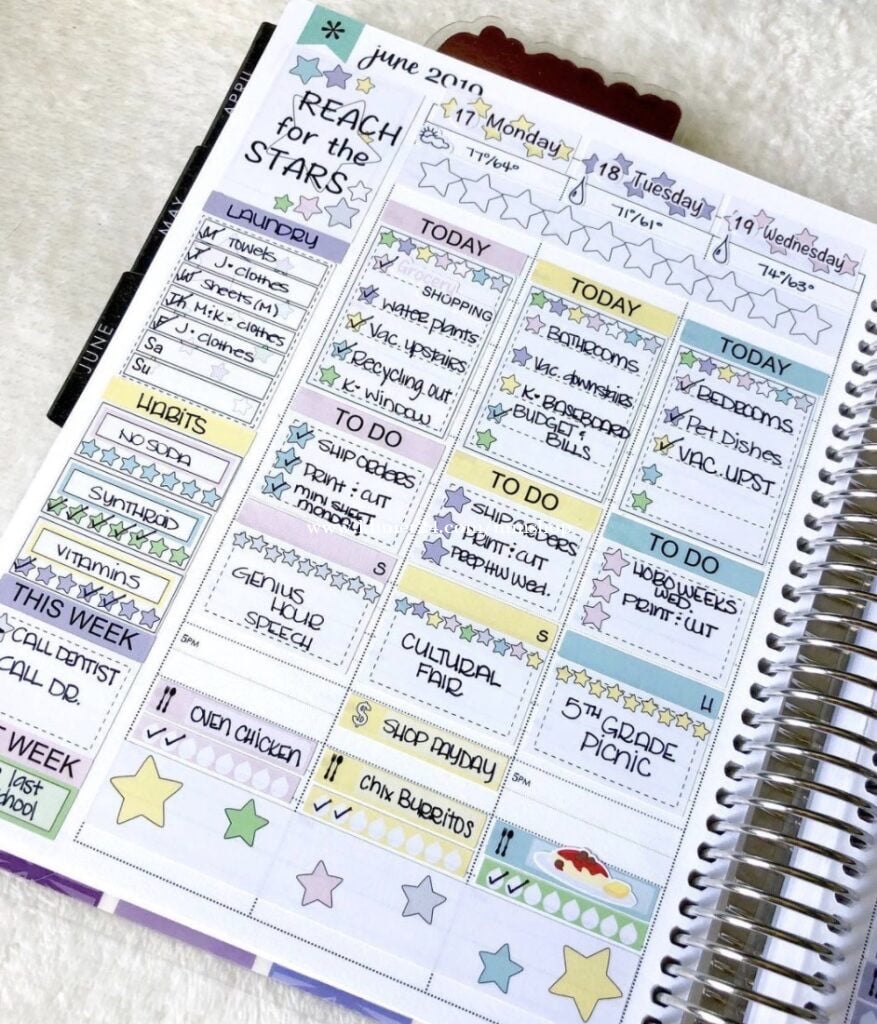 APRIL
MAY
JUNE
june 2019
REACH
for the
STARS
LAUNDRY
M Towels
T J. clothes
W Sheets (M)
Th M.K. clothes
F J. clothes
Sa
Su
HABITS
NO SODA
SYNTHROID
VITAMINS
THIS WEEK
CALL DENTIST
CALL DR.
T WEEK
last
chool
17 Monday
77°/64°
TODAY
Grocery
SHOPPING
Water plants
Vac. upstairs
Recycling out
K. WINDOW
TO DO
SHIP ORDERS
PRINT : CUT
mini SHEET
S
GENIUS
HOUR
SPEECH
5PM
OVEN CHICKEN
18 Tuesday
71°/61°
TODAY
BATHROOMS
Vac. downstairs
K. BASEBOARD
BUDGET &
BILLS
TO DO
SHIP ORDERS
PRINT : CUT
PREP HW Wed.
S
CULTURAL
FAIR
$ SHOP PAYDAY
CHIX BURRITOS
19 Wednesday
74°/63°
TODAY
BEDROOMS
Pet Dishes
VAC. UPST
TO DO
HOBO WEEKS
WED.
PRINT : CUT
5TH GRADE
PICNIC
5PM